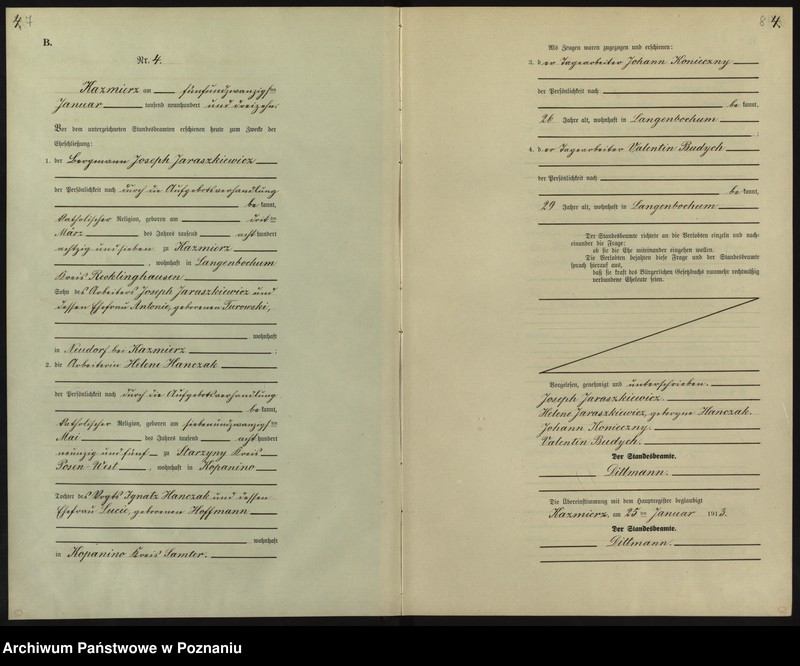 4.7
B.
Nr. 4.
Kazmierz am fünfundzwanzigsten
Januar tausend neunhundert und dreizehn.
Vor dem unterzeichneten Standesbeamten erschienen heute zum Zwecke der
Eheschließung:
1. der Bergmann Joseph Jaraszkiewicz
der Persönlichkeit nach durch die Aufgebotsverhandlung
be kannt,
katholischer Religion, geboren am dritten
März des Jahres tausend acht hundert
achtzig und sieben zu Kazmierz
, wohnhaft in Langenbochum
Kreis Recklinghausen
Sohn des Arbeiters Joseph Jaraszkiewicz und
dessen Ehefrau Antonie, geborenen Turowski,
wohnhaft
in Neudorf bei Kazmierz ;
2. die Arbeiterin Helene Hanczak
der Persönlichkeit nach durch die Aufgebotsverhandlung
be kannt,
katholischer Religion, geboren am siebenundzwanzigsten
Mai des Jahres tausend acht hundert
neunzig und fünf zu Starzyny Kreis
Posen-West , wohnhaft in Kopanino
Tochter des Vogts Ignatz Hanczak und dessen
Ehefrau Lucie, geborenen Hoffmann
wohnhaft
in Kopanino Kreis Samter.
8 4.
Als Zeugen waren zugezogen und erschienen:
3. der Tagearbeiter Johann Konieczny
der Persönlichkeit nach
be kannt,
26 Jahre alt, wohnhaft in Langenbochum
;
4. der Tagearbeiter Valentin Budych
der Persönlichkeit nach
be kannt,
29 Jahre alt, wohnhaft in Langenbochum
Der Standesbeamte richtete an die Verlobten einzeln und nach-
einander die Frage:
ob sie die Ehe miteinander eingehen wollen.
Die Verlobten bejahten diese Frage und der Standesbeamte
sprach hierauf aus,
daß sie kraft des Bürgerlichen Gesetzbuchs nunmehr rechtmäßig
verbundene Eheleute seien.
Vorgelesen, genehmigt und unterschrieben.
Joseph Jaraszkiewicz.
Helene Jaraszkiewicz, geborene Hanczak.
Johann Konieczny.
Valentin Budych.
Der Standesbeamte.
Dittmann.
Die Übereinstimmung mit dem Hauptregister beglaubigt
Kazmierz, am 25ten Januar 1913.
Der Standesbeamte.
Dittmann.
Archiwum Państwowe w Poznaniu